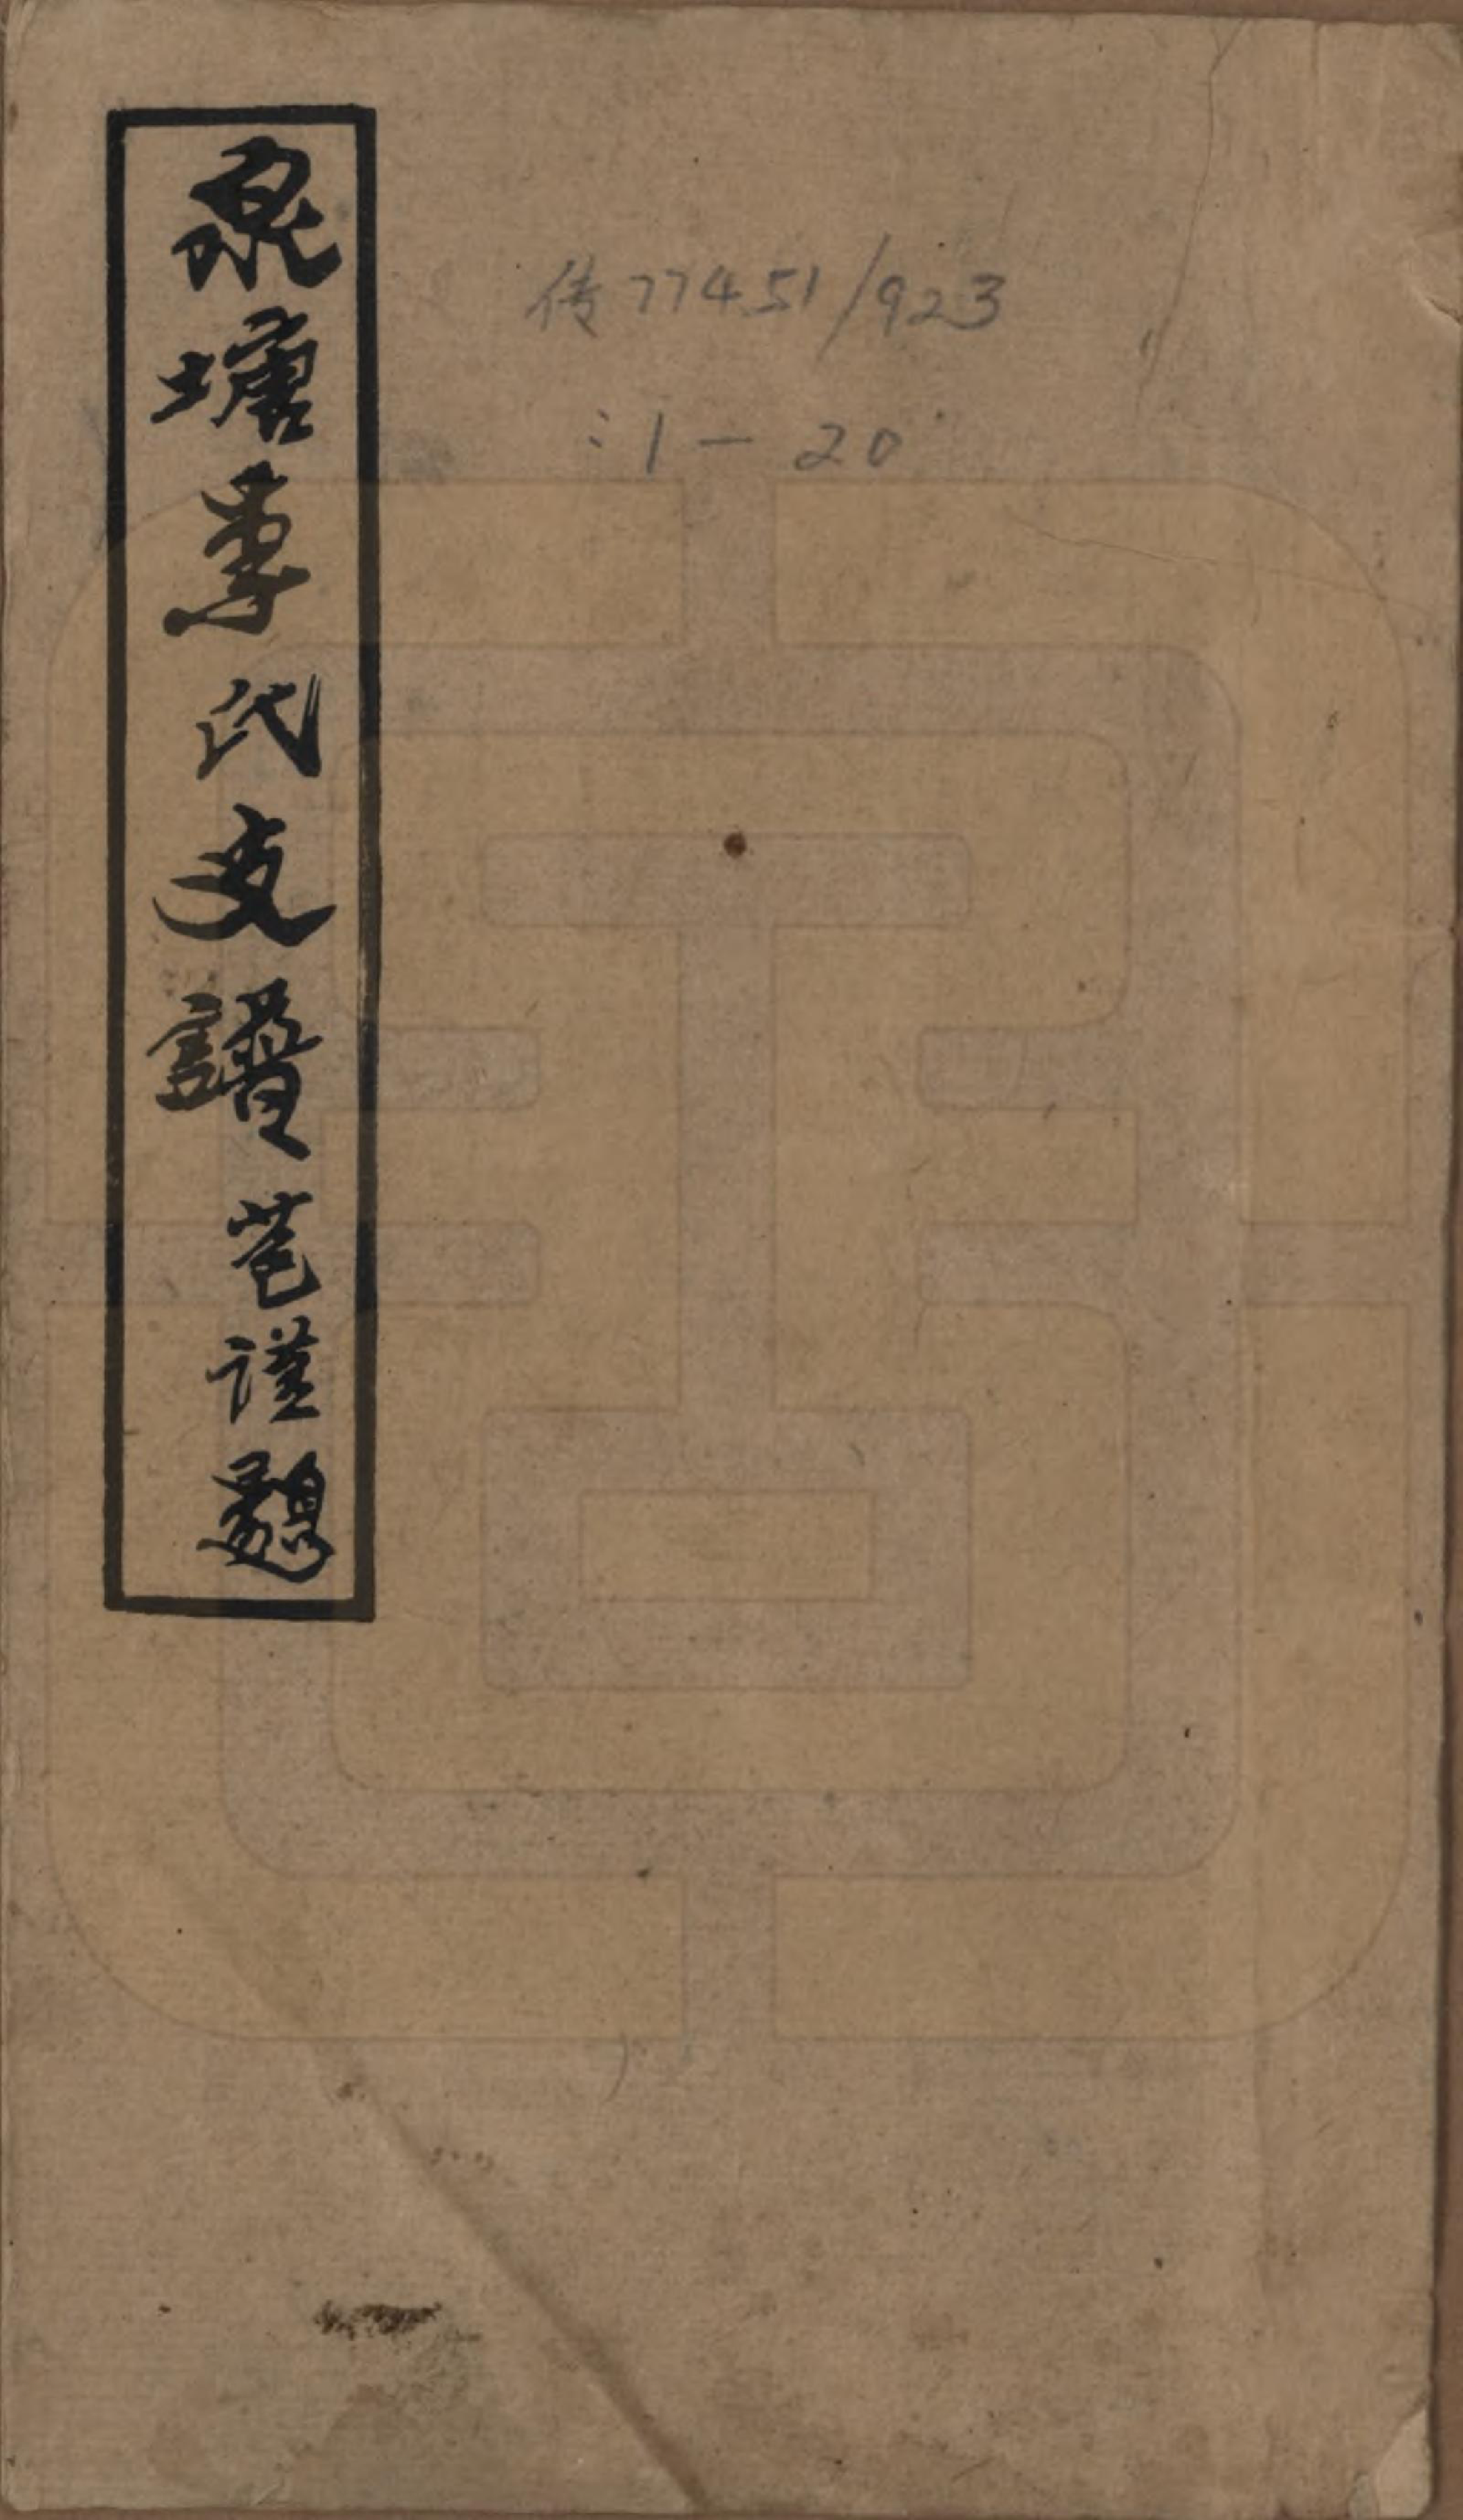 泉塘李氏支譜 苞謹題
传77451/923
:1-20